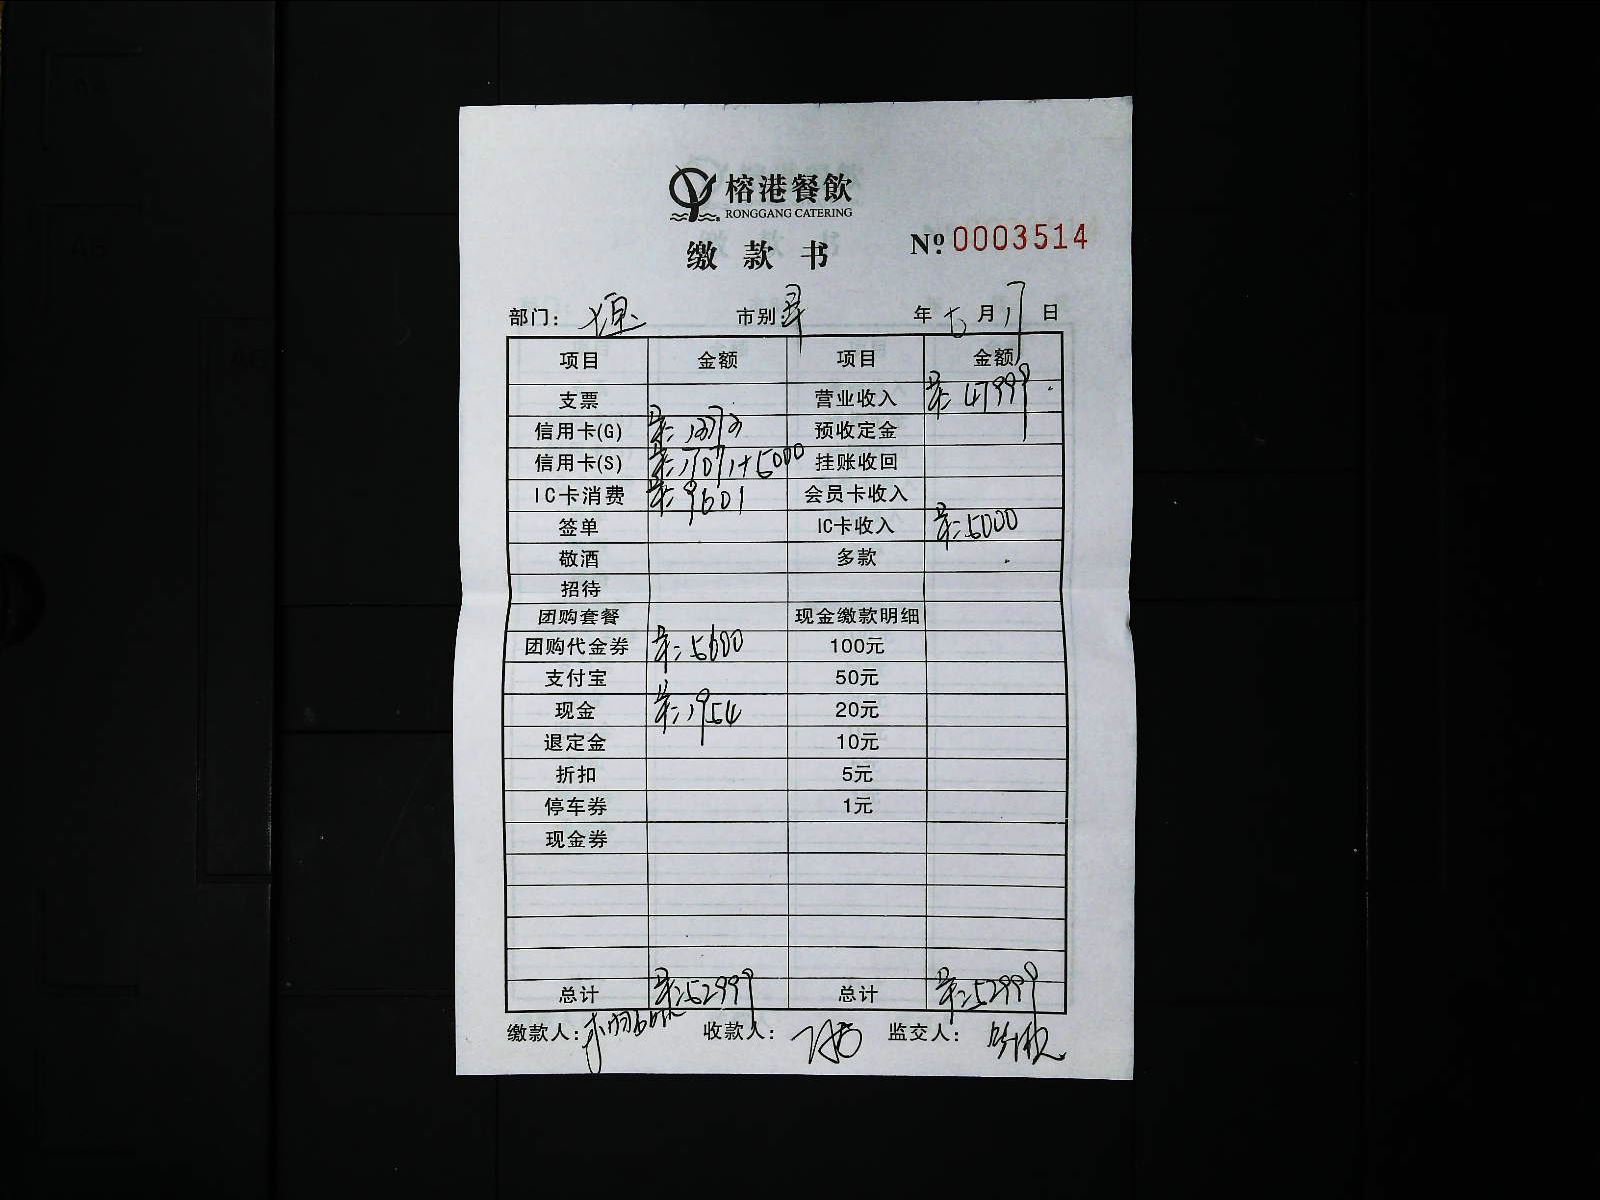 榕港餐飲
RONGGANG CATERING
缴款书
№ 0003514
部门: 市别 年 5 月 17 日
项目 金额 项目 金额
支票 营业收入 47999
信用卡(G) 预收定金
信用卡(S) +5000 挂账收回
IC卡消费 9601 会员卡收入
签单 IC卡收入 5000
敬酒 多款
招待
团购套餐 现金缴款明细
团购代金券 5600 100元
支付宝 50元
现金 1954 20元
退定金 10元
折扣 5元
停车券 1元
现金券
总计 52999 总计 52999
缴款人: 收款人: 监交人: